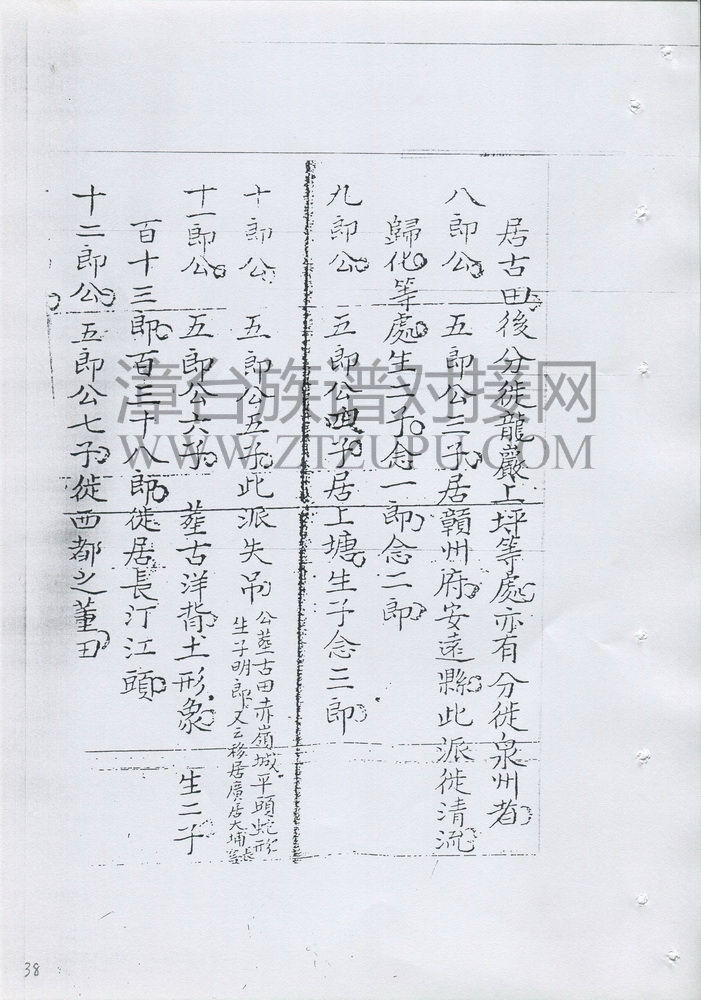 居古田後分徙龍巖上坪等處亦有分徙泉州者
八郎公 五郎公三子居贛州府安遠縣此派徙清流
歸化等處生二子念一郎念二郎
九郎公 五郎公四子居上塘生子念三郎
十郎公 五郎公五子此派失吊
公葬古田赤嶺城平頭蛇形
生子明郎又云移居廣居大埔
十一郎公 五郎公六子 葬古洋背土形象 生二子
百十三郎百三十八郎徙居長汀江頭
十二郎公 五郎公七子徙西都之董田
漳台族谱对接网
WWW.ZTZUPU.COM
38